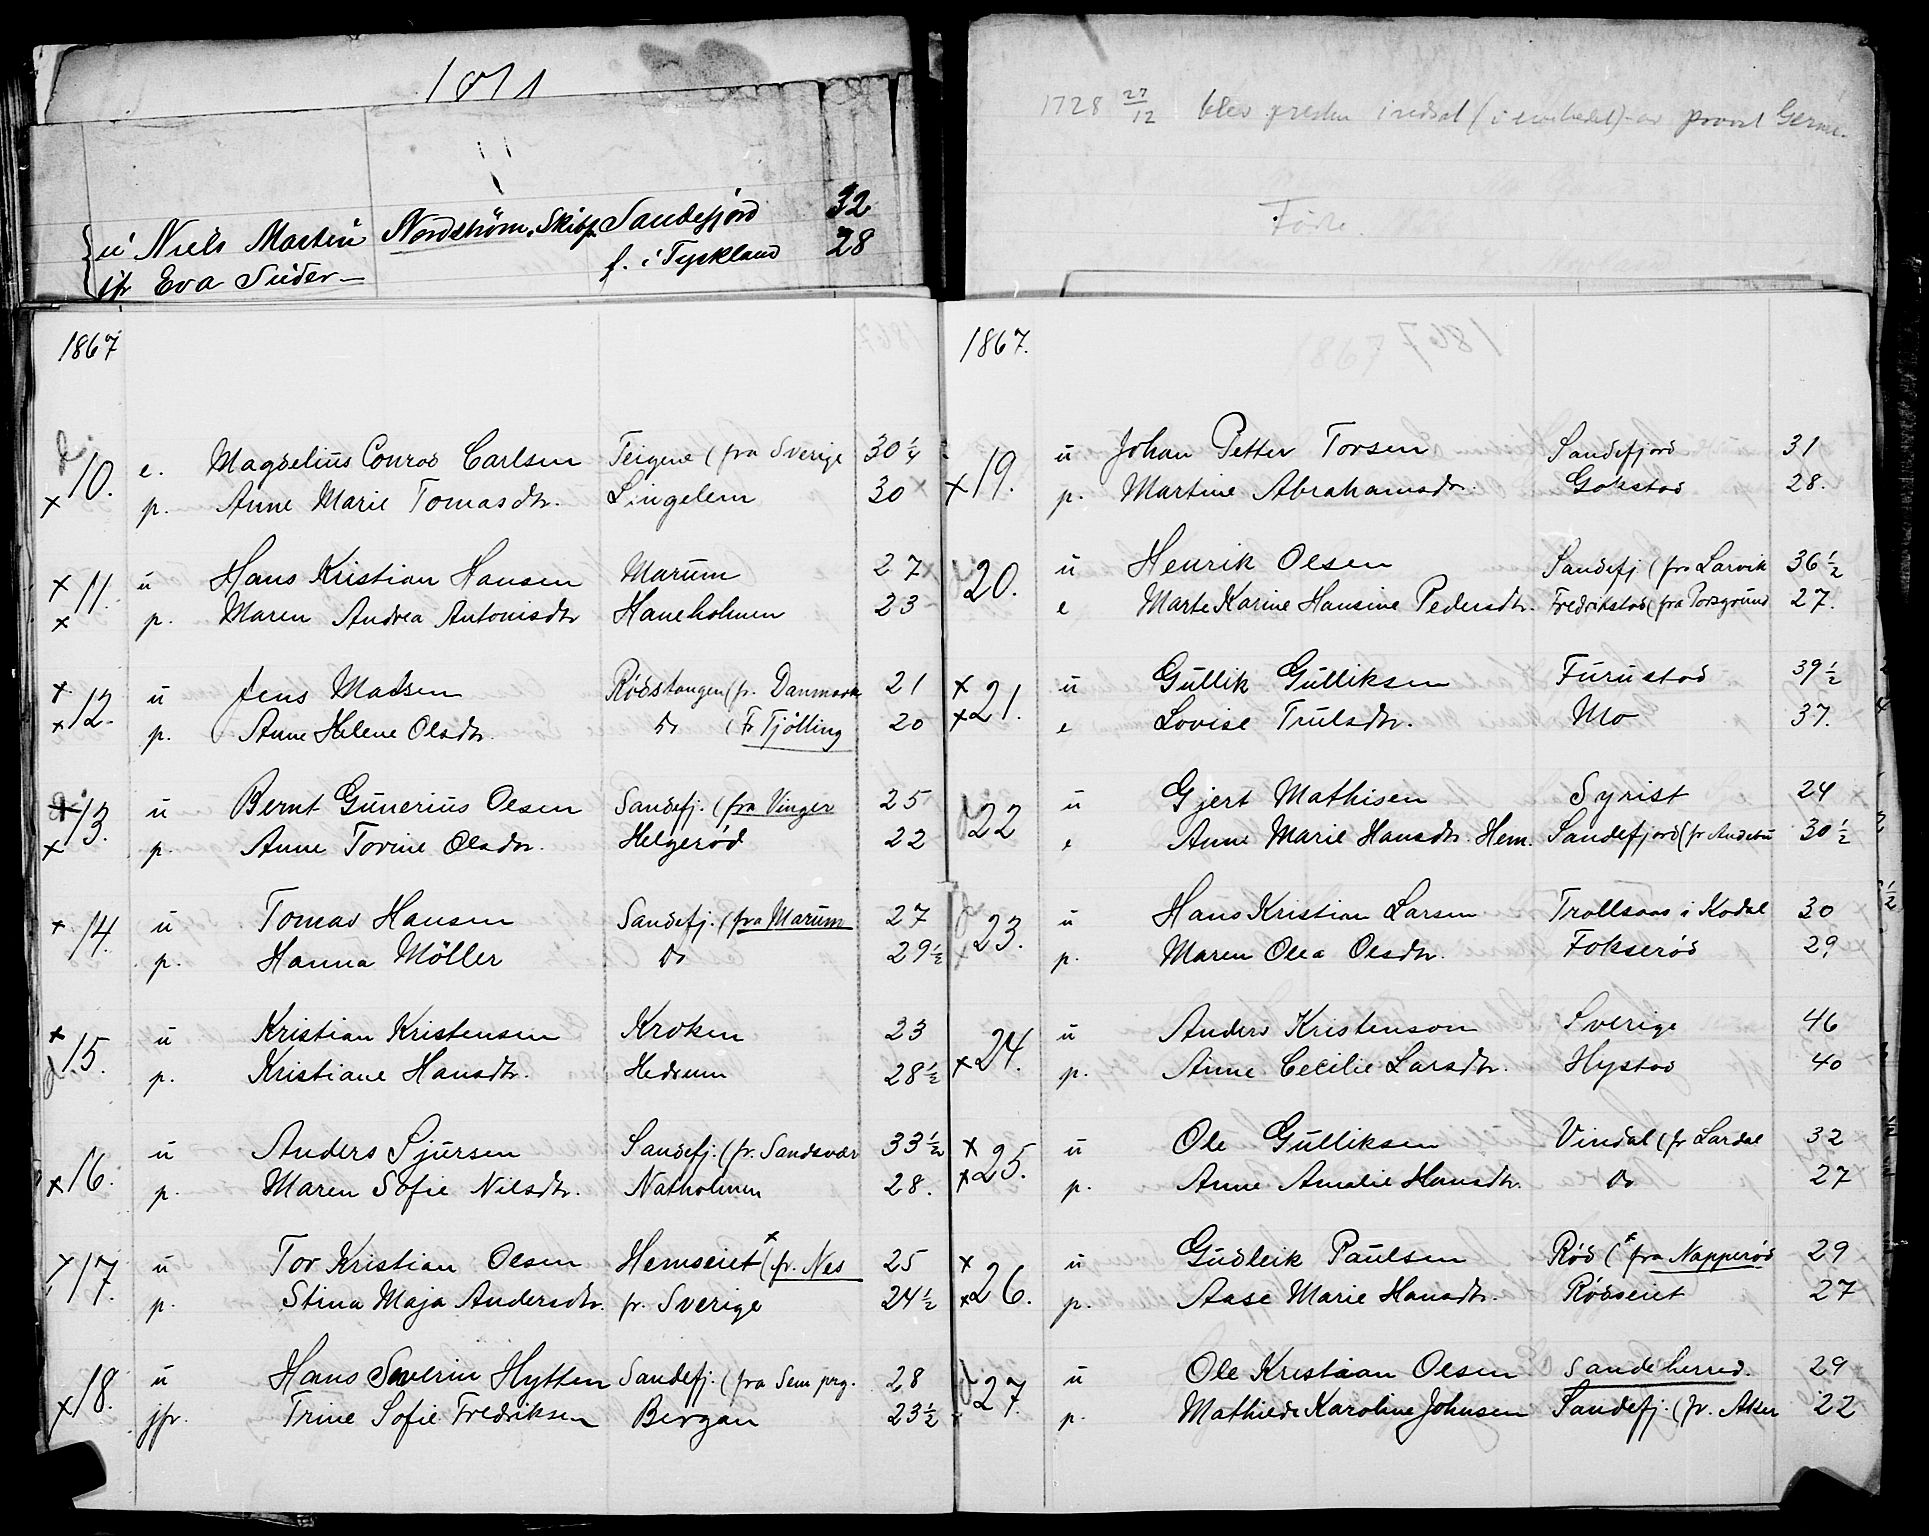 1871
u Niels Martin Nordström, Skibsf. Sandefjord 32
jfr Eva Suder f. i Tyskland 28
1728 27/12 blev presten indsat (i embedet) av provst
Føde.
1867
10. e. Magdelius Conrad Carlsen Teigene (fra Sverige 30 1/4
p. Anne Marie Tomasdtr. Lingelem 30
11. u Hans Kristian Hansen Marum 27
p. Maren Andrea Antonisdtr Haneholmen 23
12. u Jens Madsen Rødstangen (fr. Danmark 21
p. Anne Helene Olsdtr. Do (Fr Tjölling 20
13. u Bernt Gunerius Olsen Sandefj. (fra Vinger 25
p. Anne Torine Olsdtr. Helgerød 22
14. u Tomas Hansen Sandefj. (fra Marum 27
p. Hanna Möller Do 29 1/2
15. u Kristian Kristensen Kroken 23
p. Kristiane Hansdtr. Hedrum 28 1/2
16. u Anders Sjursen Sandefj. (fr. Sandsvær 33 1/2
p. Maren Sofie Nilsdtr. Natholmen 28.
17. u Tor Kristian Olsen Hemseiet (fr. Nes 25
p. Stina Maja Andersdtr. fr. Sverige 24 1/2
18. u Hans Severin Hytten Sandefj. (fra Sem prg. 28
jfr. Trine Sofie Fredriksen Bergan 23 1/2
1867.
19. u Johan Petter Torsen Sandefjord 31
p. Martine Abrahamsdtr. Gokstad 28.
20. u Henrik Olsen Sandefj (fra Larvik 36 1/2
e Marte Karine Hansine Pedersdtr. Fredrikstad (fra Porsgrund 27.
21. u Gullik Gulliksen Furustad 39 1/2
e Lovise Trulsdtr. Mo 37.
22 u Gjert Mathisen Syrist 24
e Anne Marie Hansdtr. Hem. Sandefjord (fr Andebu 30 1/2
23. u Hans Kristian Larsen Trollsaas i Kodal 30
p. Maren Olea Olsdtr. Fokserød 29
24. u Anders Kristenson Sverige 46
p. Anne Cecilie Larsdtr. Hystad 40
25. u Ole Gulliksen Vindal (fr Lardal 32
p. Anne Amalie Hansdtr. Do 27
26. u Gudleik Paulsen Rød (fra Napperød 29
p. Aase Marie Hansdtr. Rødseiet 27
27. u Ole Kristian Olsen Sandeherred. 29
p. Mathilde Karoline Johnsen Sandefj. (fr. Aker 22